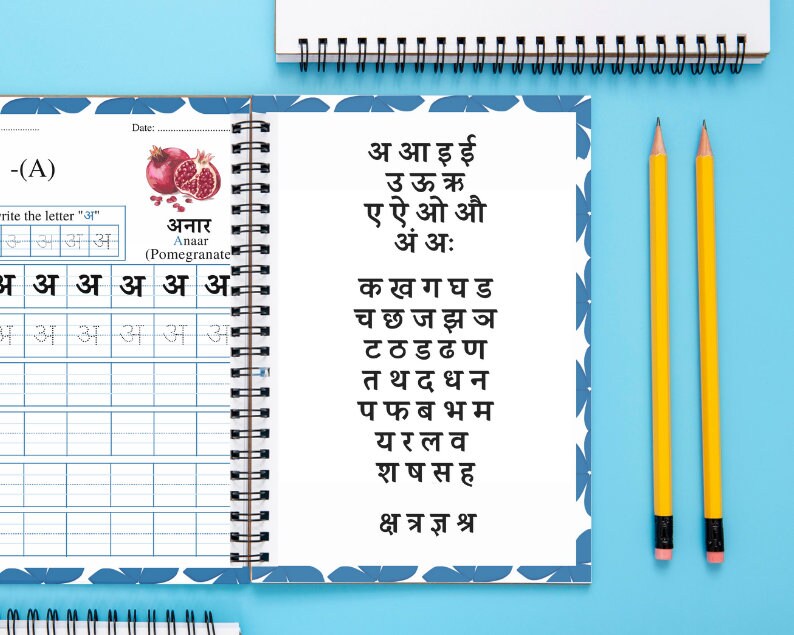 Date: ............................
-(A)
rite the letter "अ"
अ अ अ अ
अनार
Anaar
(Pomegranate
अ अ अ अ अ अ
अ अ अ अ अ अ
अ आ इ ई
उ ऊ ऋ
ए ऐ ओ औ
अं अः
क ख ग घ ड
च छ ज झ ञ
ट ठ ड ढ ण
त थ द ध न
प फ ब भ म
य र ल व
श ष स ह
क्ष त्र ज्ञ श्र